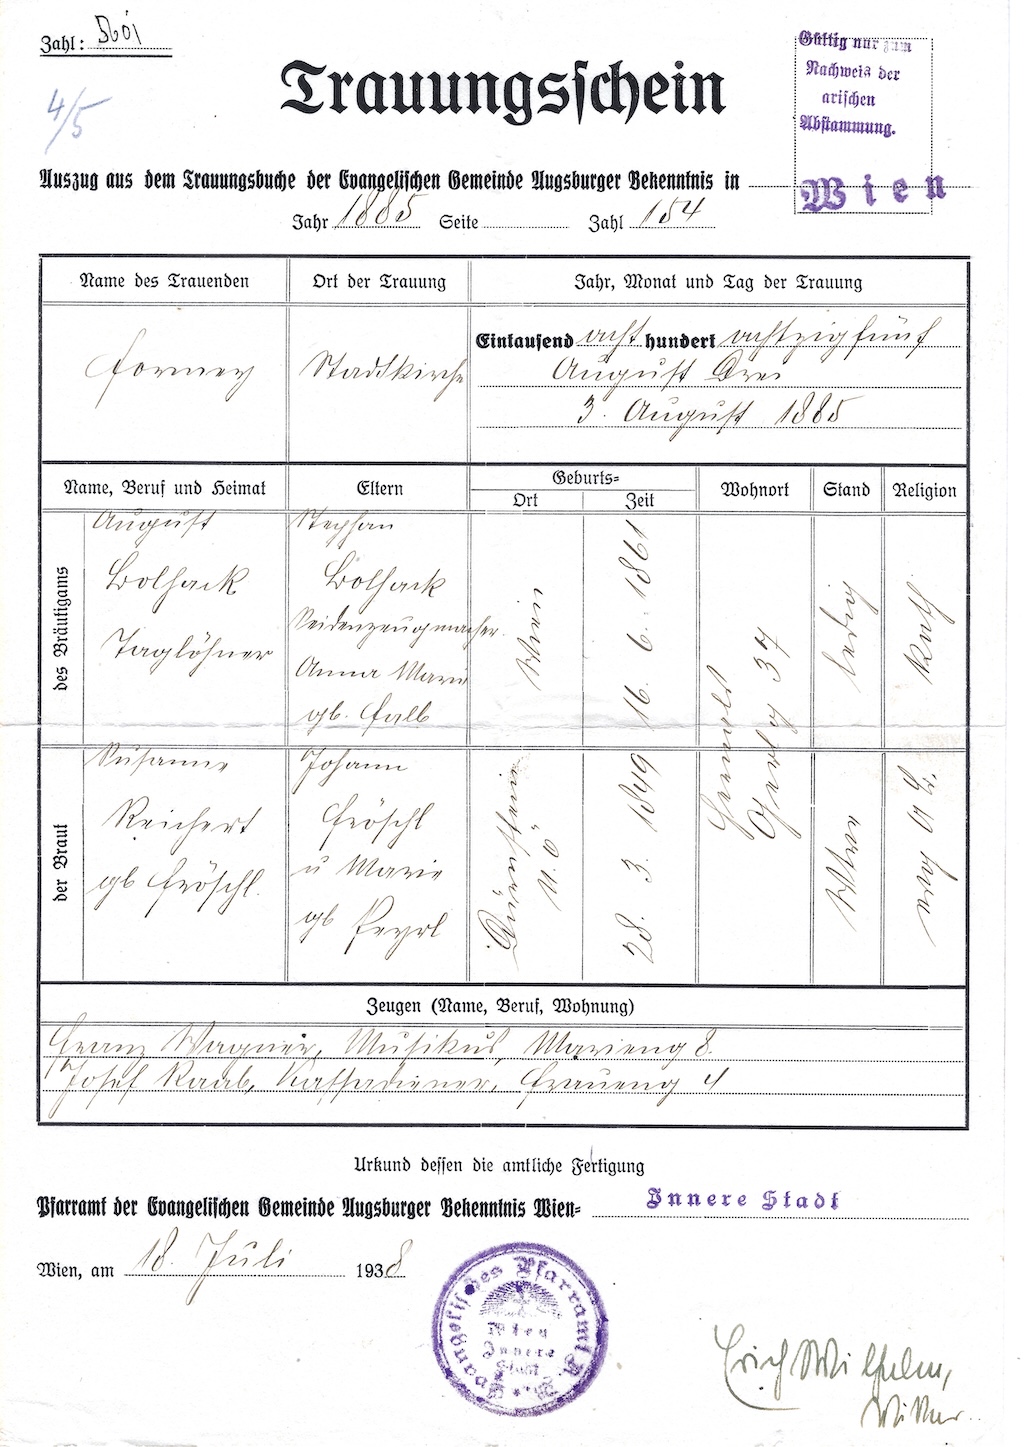 Zahl: 5601
4/5
Gültig nur zum
Nachweis der
arischen
Abstammung.
Trauungsschein
Auszug aus dem Trauungsbuche der Evangelischen Gemeinde Augsburger Bekenntnis in Wien
Jahr 1885 Seite Zahl 154
Name des Trauenden
Ort der Trauung
Jahr, Monat und Tag der Trauung
Formey
Stadtkirche
Eintausend acht hundert achtzigfünf
August Drei
3. August 1885
Name, Beruf und Heimat
Eltern
Geburts-
Ort
Zeit
Wohnort
Stand
Religion
des Bräutigams
August
Bolhack
Taglöhner
Stephan
Bolhack
Seidenzeugmacher
Anna Marie
gb. Falb
Wien
16. 6. 1861
37
ledig
kath.
der Braut
Susanne
Reichert
gb Fröschl.
Johann
Fröschl
u Marie
gb Peyrl
Dürnstein
N.Ö
28. 3. 1849
Wwe
evg A.B.
Zeugen (Name, Beruf, Wohnung)
Franz Wagner, Musikus, Marieng 8.
Josef Raab, Kassadiener, Fraueng 4
Urkund dessen die amtliche Fertigung
Pfarramt der Evangelischen Gemeinde Augsburger Bekenntnis Wien- Innere Stadt
Wien, am 18. Juli 1938
Evangelisches Pfarramt A. B.
Wien
Innere
Stadt
Erich Wilhelm,
Vikar.